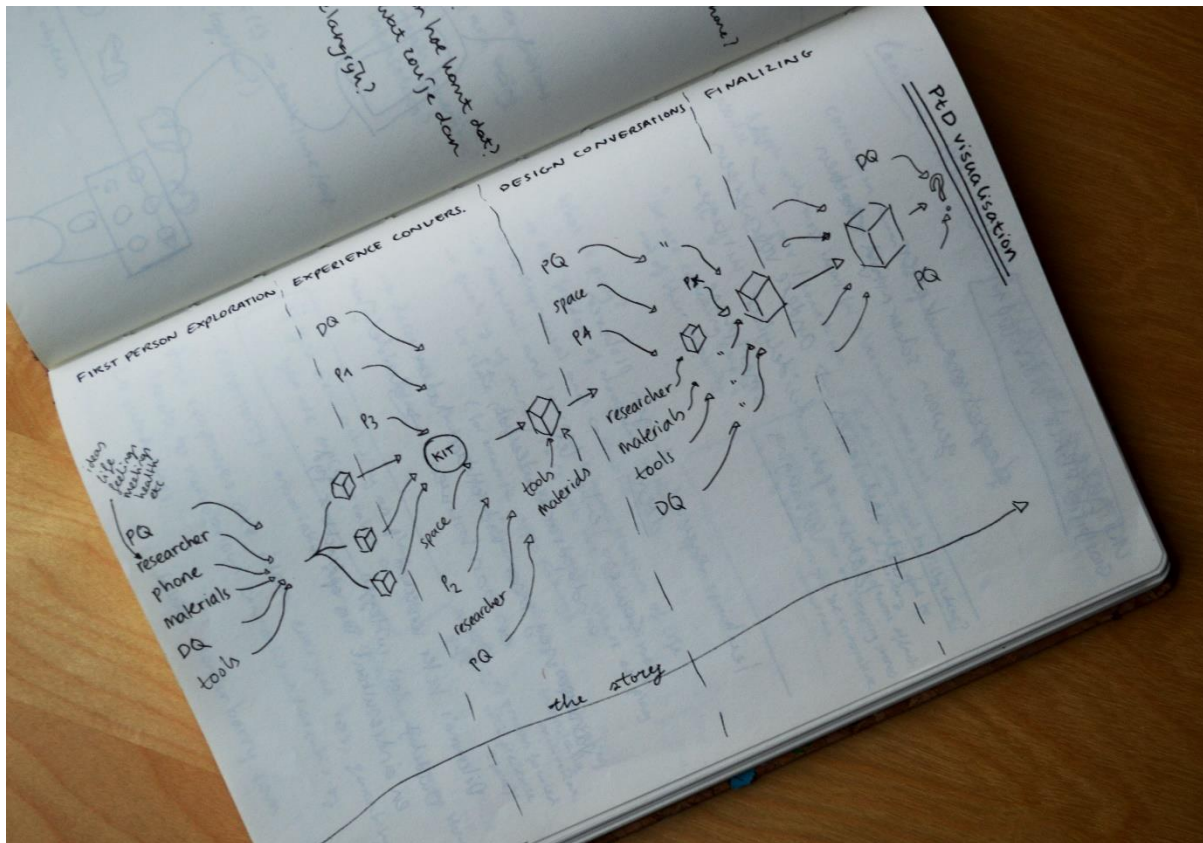 hoe komt dat?
wat zou je dan
belangrijk?
PtD visualisation
FIRST PERSON EXPLORATION
EXPERIENCE CONVERS.
DESIGN CONVERSATIONS
FINALIZING
ideas
life
feelings
meetings
health
etc
PQ
researcher
phone
materials
DQ
tools
DQ
P1
P3
KIT
space
P2
researcher
PQ
tools
materials
PQ "
space
P4
researcher "
materials "
tools "
DQ
DQ
PQ
the story